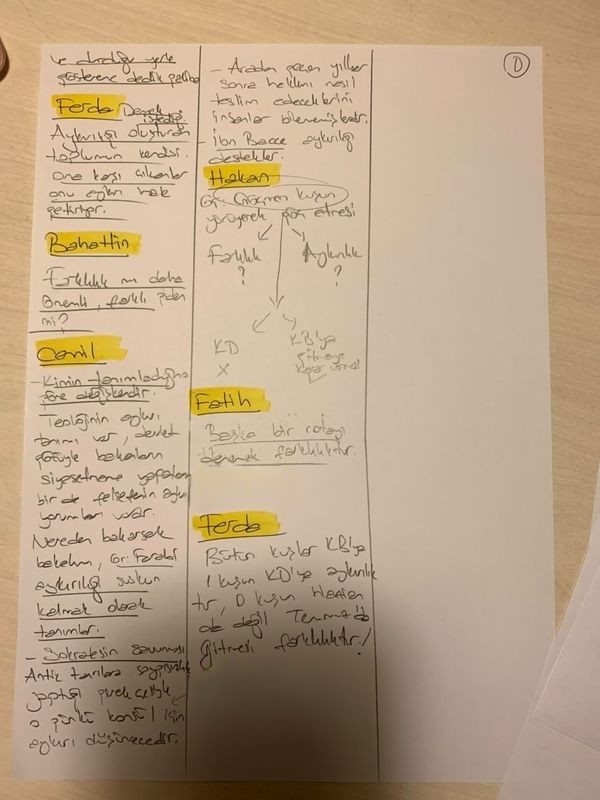 ve durduğu yerle
gösterene dedik
Ferda Demek
istediği:
Aykırılığı oluşturan
toplumun kendisi.
ona karşı çıkanlar
onu aykırı hale
getiriyor.
Bahattin
Farklılık mı daha
önemli, farklı giden
mi?
Cemil
- Kimin tanımladığına
göre değişkendir.
Teolojinin aykırı
tanımı var, devlet
gözüyle bakanların
siyasetname yapanların
bir de felsefenin aykırı
yorumları var.
Nereden bakarsak
bakalım, ör: Farabi
aykırılığı suskun
kalmak olarak
tanımlar.
- Sokrates'in savunması
Antik tanrılara saygısızlık
yaptığı gerekçesiyle
o günkü konsül için
aykırı düşünecedir.
- Aradan geçen yıllar
sonra hakkını nasıl
teslim edeceklerini
insanlar bilememişlerdir.
- İbn Bacce aykırılığı
destekler.
Hakan
ör: Göçmen kuşun
yürüyerek göç etmesi
Farklılık Aykırılık
? ?
KD KB'ya
X gitmeye
karar vermesi
Fatih
Başka bir rotayı
denemek farklılıktır.
Ferda
Bütün kuşlar KB'ya
1 kuşun KD'ya aykırılık
tır, O kuşun Haziran
da değil Temmuz'da
gitmesi farklılıktır!
D